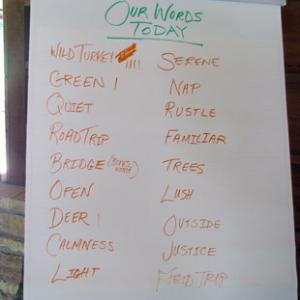 OUR WORDS
TODAY
WILD TURKEY !!!!
GREEN !
QUIET
ROAD TRIP
BRIDGE
OPEN
DEER !
CALMNESS
LIGHT
SERENE
NAP
RUSTLE
FAMILIAR
TREES
LUSH
OUTSIDE
JUSTICE
FIELD TRIP